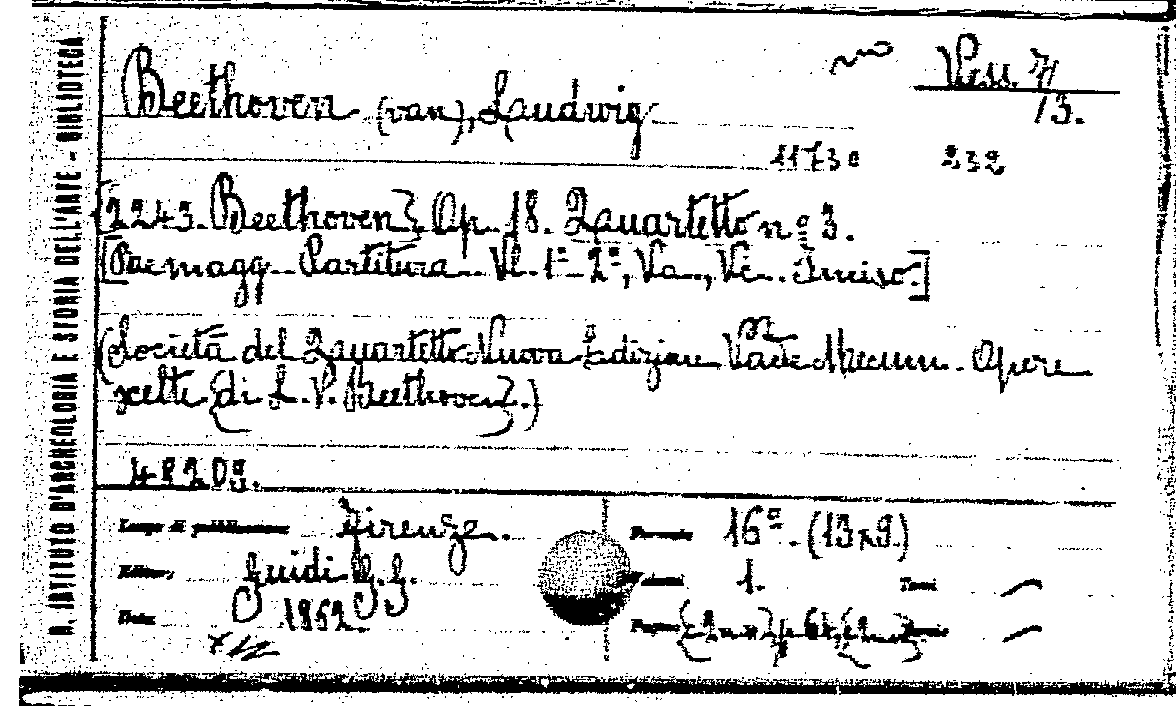 R. ISTITUTO D'ARCHEOLOGIA E STORIA DELL'ARTE - BIBLIOTECA
Vess. 7/13.
Beethoven (van), Laudwig
11730 232
[2243. Beethoven}. Op. 18. Quartetto nº 3.
[Re magg. Partitura. Vl. 1º- 2º, Va., Vc. Inciso.]
(Società del Quartetto Nuova Edizione Vade Mecum. Opere
scelte {di L. V. Beethoven}.)
48209.
Luogo di pubblicazione Firenze. Formato 16º. (13x9.)
Editore Guidi G. G. Volumi 1. Tomi
Data 1862. Pagine